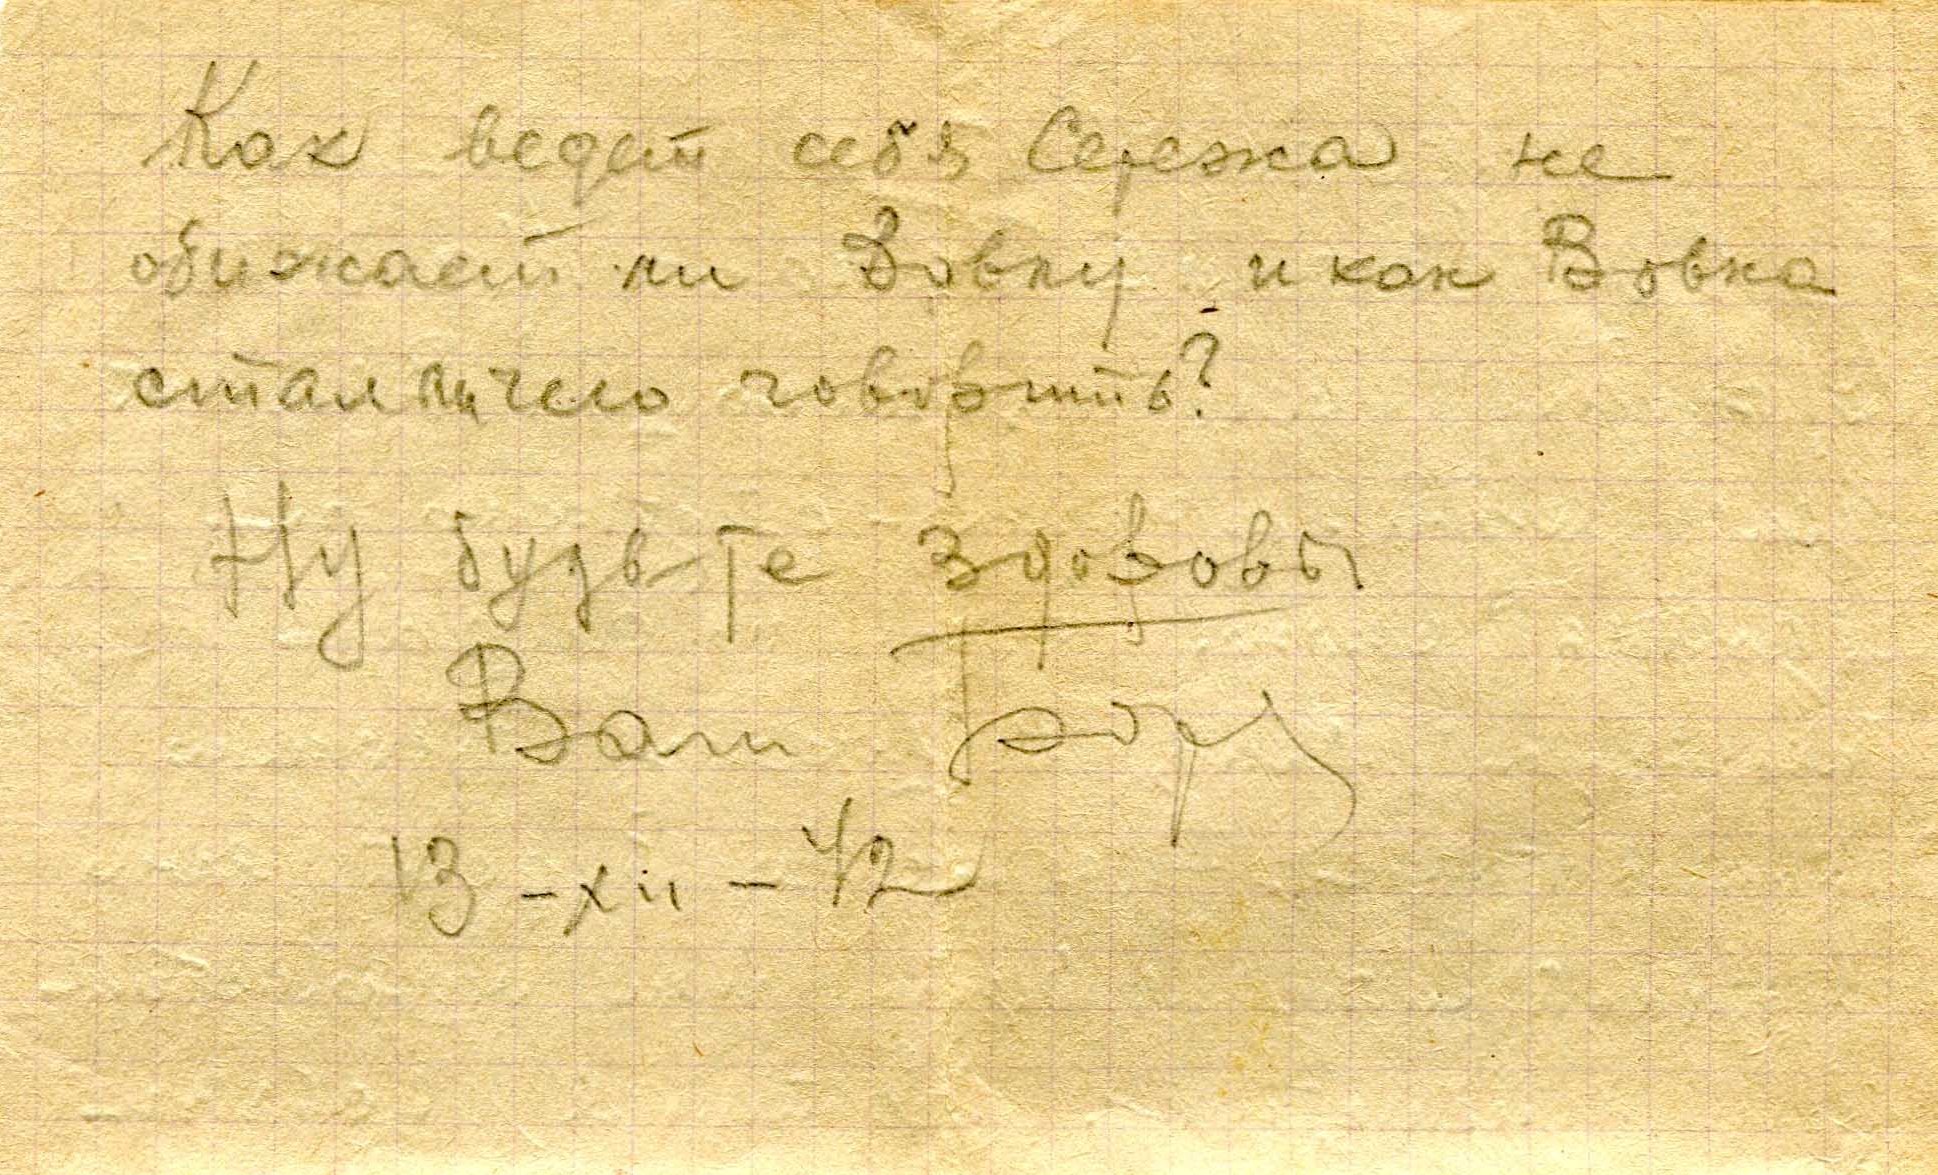 Как ведет себя Сережа не
обижает ли Вовку и как Вовка
стал ничего говорить?
Ну будьте здоровы
Ваш
13-XII-42